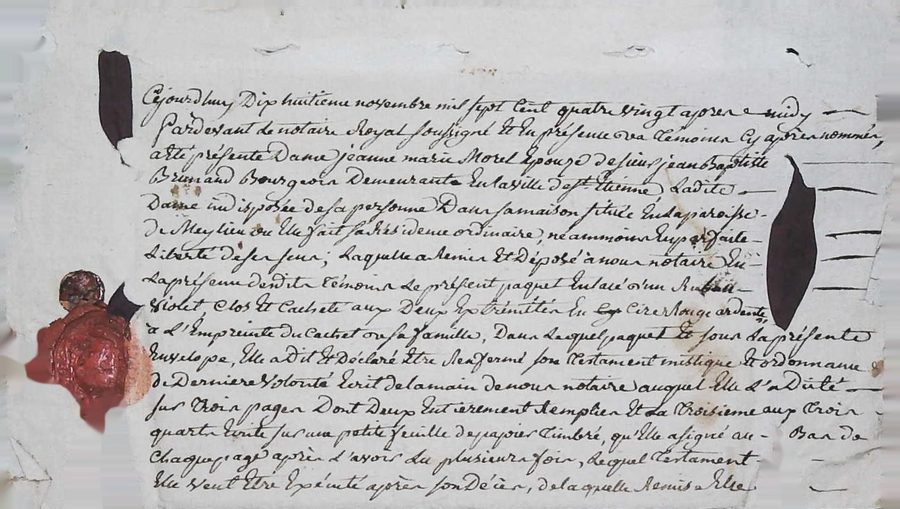 Cejourdhuy Dix huitieme novembre mil sept cent quatre vingt apres midy
Pardevant le notaire Royal soussigné Et En présence des Témoins Cy après nommés,
a Eté présente Dame jeanne marie Morel Epouze de sieur jean Baptiste
Brunand Bourgeois Demeurante En la ville de st. Etienne, Ladite
Dame indisposée de sa personne Dans sa maison située En la paroisse
de Meylieu ou Elle fait sa Residence ordinaire, néammoins En parfaite
Liberté de ses sens; Laquelle a Remis Et Déposé a nous notaire En
La présence desdits Témoins Le présent paquet Enlacé d'un Ruban
Violet, Clos Et Cacheté aux Deux Extrémités En Cire Rouge ardente,
a L'Empreinte du Cachet de sa famille, Dans Lequel paquet Et sous La présente
Envelope, Elle a Dit Et Déclaré Etre Renfermé son Testament mistique Et ordonnance
de Derniere Volonté Ecrit de la main de nous notaire auquel Elle L'a Dicté
sur Trois pages Dont Deux Entièrement Remplies Et La Troisieme aux Trois
quarts Ecrite sur une petite feuille de papier Timbré, qu'Elle a signé au Bas de
Chaque page après L'avoir Lu plusieurs fois, Lequel Testament
Elle veut Etre Exécuté apres son Décès, de laquelle Remise Elle